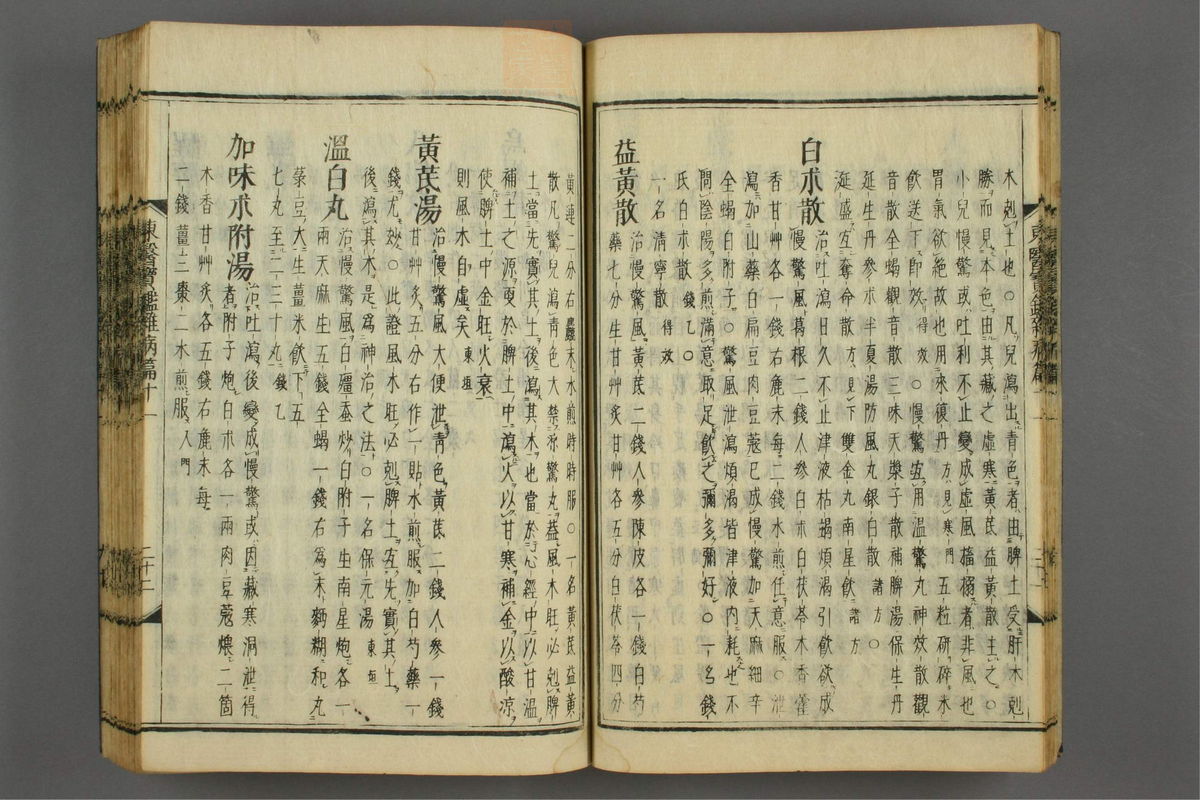 木剋土也○凡兒瀉出青色者由脾土受肝木剋
勝而見本色由其藏之虛寒黃芪益黃散主之○
小兒慢驚或吐利不止變成虛風搐搦者非風也
胃氣欲絕故也用來復丹方見寒門五粒研碎米
飮送下卽效得效○慢驚宜用溫驚丸神效散觀
音散全蝎觀音散三味天漿子散補脾湯保生丹
延生丹參朮半夏湯防風丸銀白散諸方○
涎盛宜奪命散方見下雙金丸南星飮諸方
白朮散
治吐瀉日久不止津液枯竭煩渴引飮欲成
慢驚風葛根二錢人參白朮白茯苓木香藿
香甘艸各一錢右麁末每二錢水煎任意服○泄
瀉加山藥白扁豆肉豆蔻已成慢驚加天麻細辛
全蝎白附子○驚風泄瀉煩渴皆津液內耗也不
問陰陽多煎滿意取足飮之彌多彌好○一名錢
氏白朮散錢乙○
一名淸寧散得效
益黃散
治慢驚風黃芪二錢人參陳皮各一錢白芍
藥七分生甘艸炙甘艸各五分白茯苓四分
黃連二分右麤末水煎時時服○一名黃芪益黃
散凡驚兒靑色大禁凉驚丸益風木旺必剋脾
土當先實其土後瀉其木也當於心經中以甘溫
補土之源更於脾土中瀉火以甘寒補金以酸凉
使脾土中金旺火衰
則風木自虛矣東垣
黃芪湯
治慢驚風大便泄靑色黃芪二錢人參一錢
甘艸炙五分右作一貼水煎服加白芍藥一
錢尤妙○此證風木旺必剋脾土宜先實其土
後瀉其木是爲神治之法○一名保元湯東垣
溫白丸
治慢驚風白殭蚕炒白附子生南星炮各一
兩天麻生五錢全蝎一錢右爲末麪糊和丸
菉豆大生薑米飮下五
七丸至二三十丸錢乙
加味朮附湯
治吐瀉後變成慢驚或因藏寒洞泄得
者附子炮白朮各一兩肉豆蔻煨二箇
木香甘艸炙各五錢右麁末每
二錢薑三棗二水煎服入門
東醫寶鑑雜病篇十一
二十二